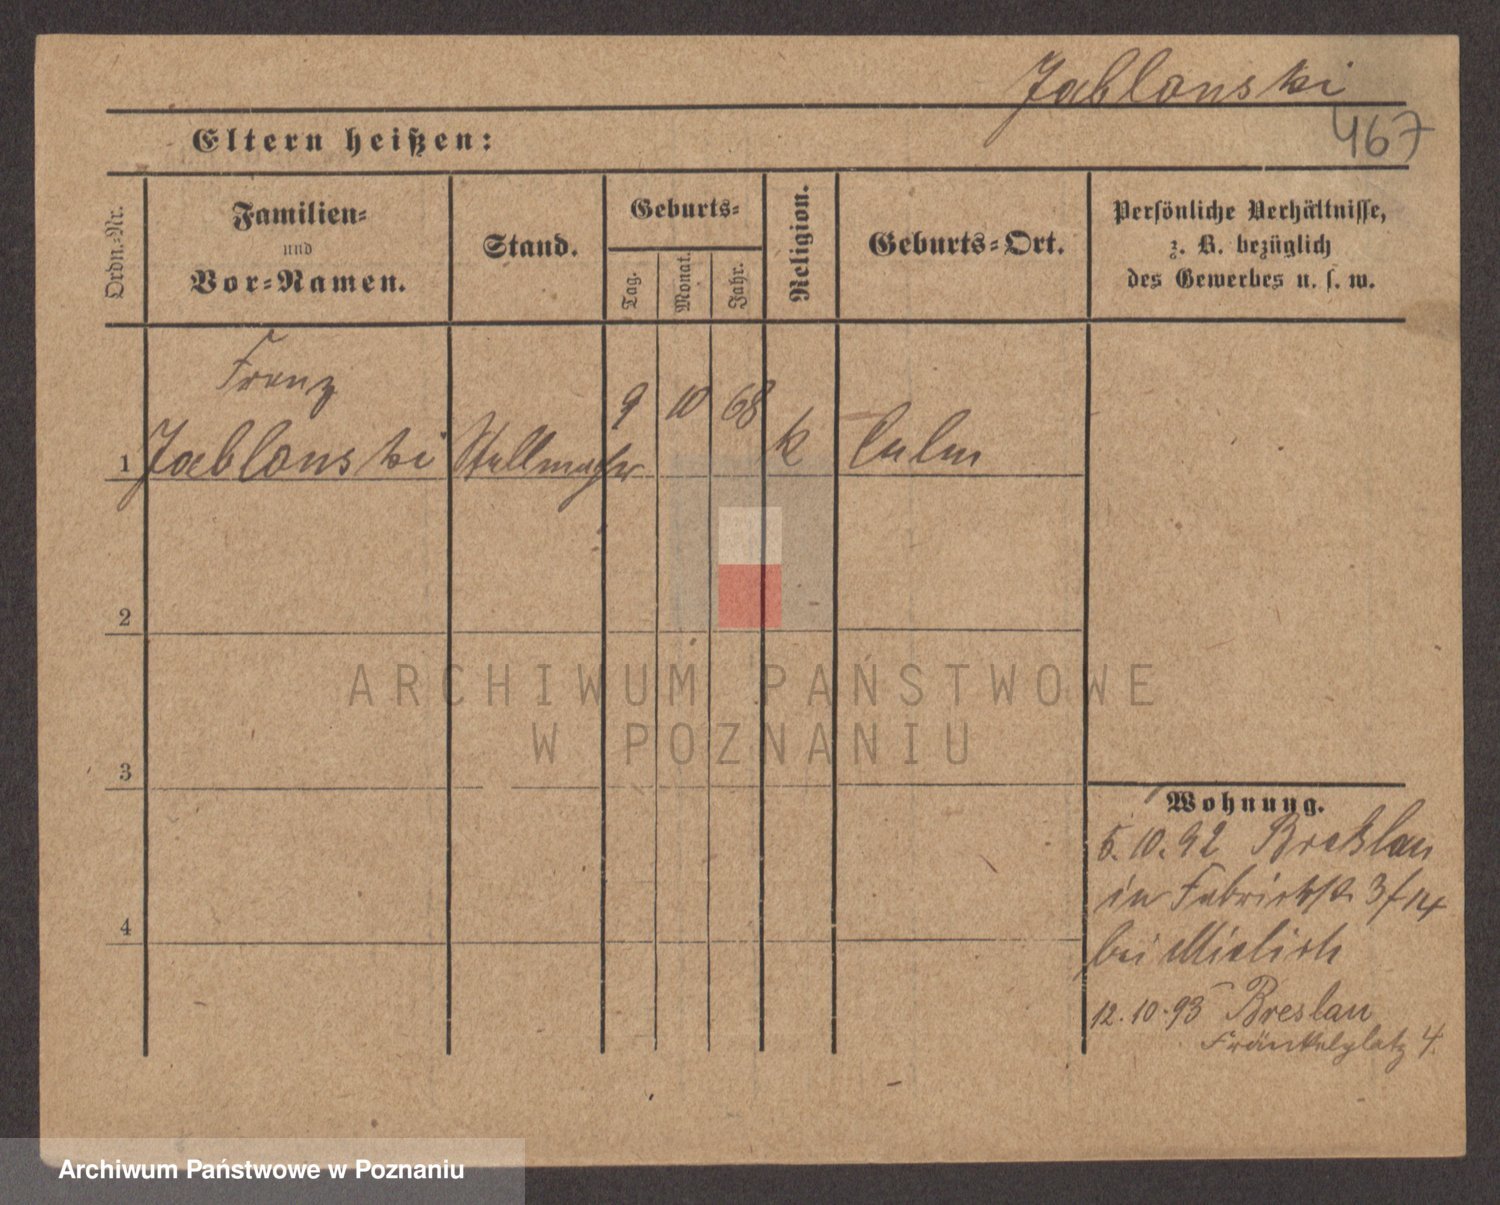 Jablonski
467
Eltern heißen:
Ordn.-Nr.
Familien-
und
Vor-Namen.
Stand.
Geburts-
Tag.
Monat.
Jahr.
Religion.
Geburts-Ort.
Persönliche Verhältnisse,
z. B. bezüglich
des Gewerbes u. s. w.
Franz
1 Jablonski Stellmacher 9 10 68 k Culm
2
3
4
Wohnung.
5.10.92 Breslau
in Fabrickstr. 3
bei Mielich
12.10.93 Breslau
Fränkelplatz 4.
ARCHIWUM PAŃSTWOWE
W POZNANIU
Archiwum Państwowe w Poznaniu